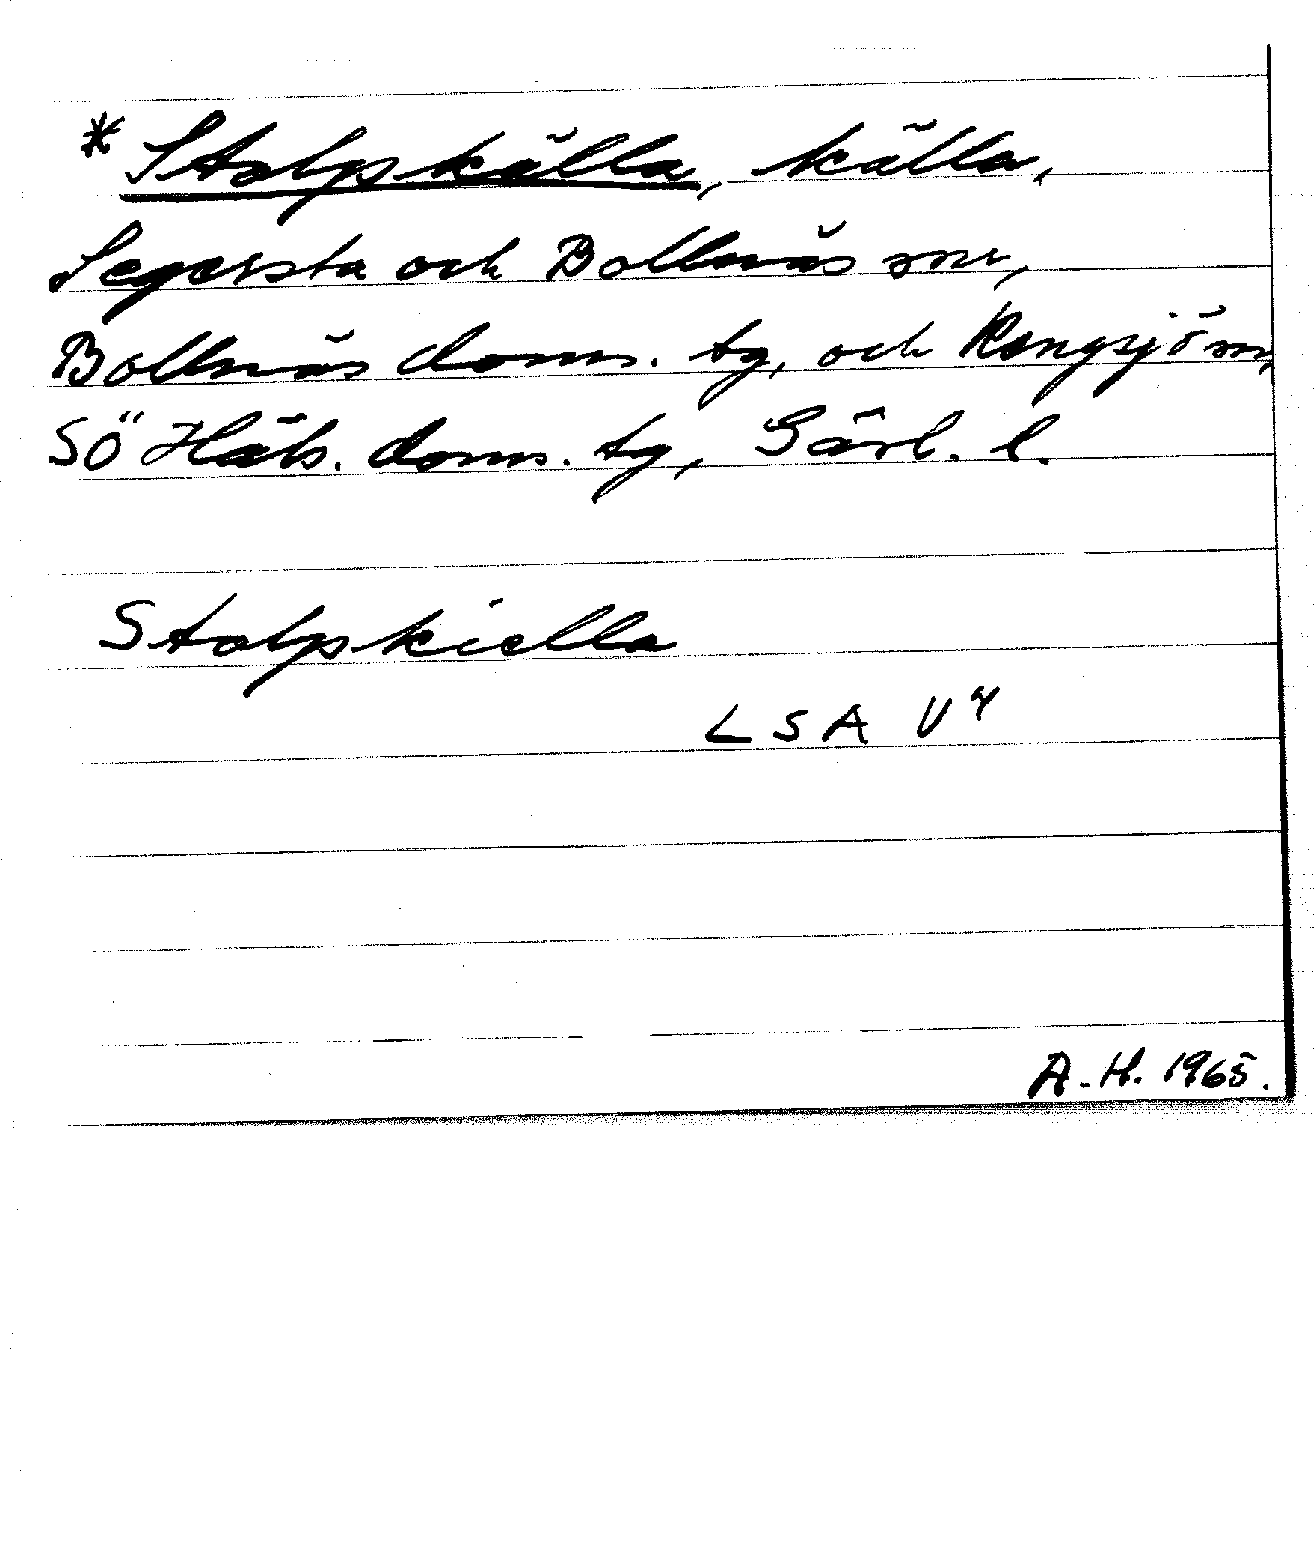 * Stolpkälla, källa,
Segersta och Bollnäs snr,
Bollnäs doms. tg, och Rengsjö sn,
SÖ Häls. doms. tg, Gävl. l.
Stolpkiella
LSA V4
A.H. 1965.